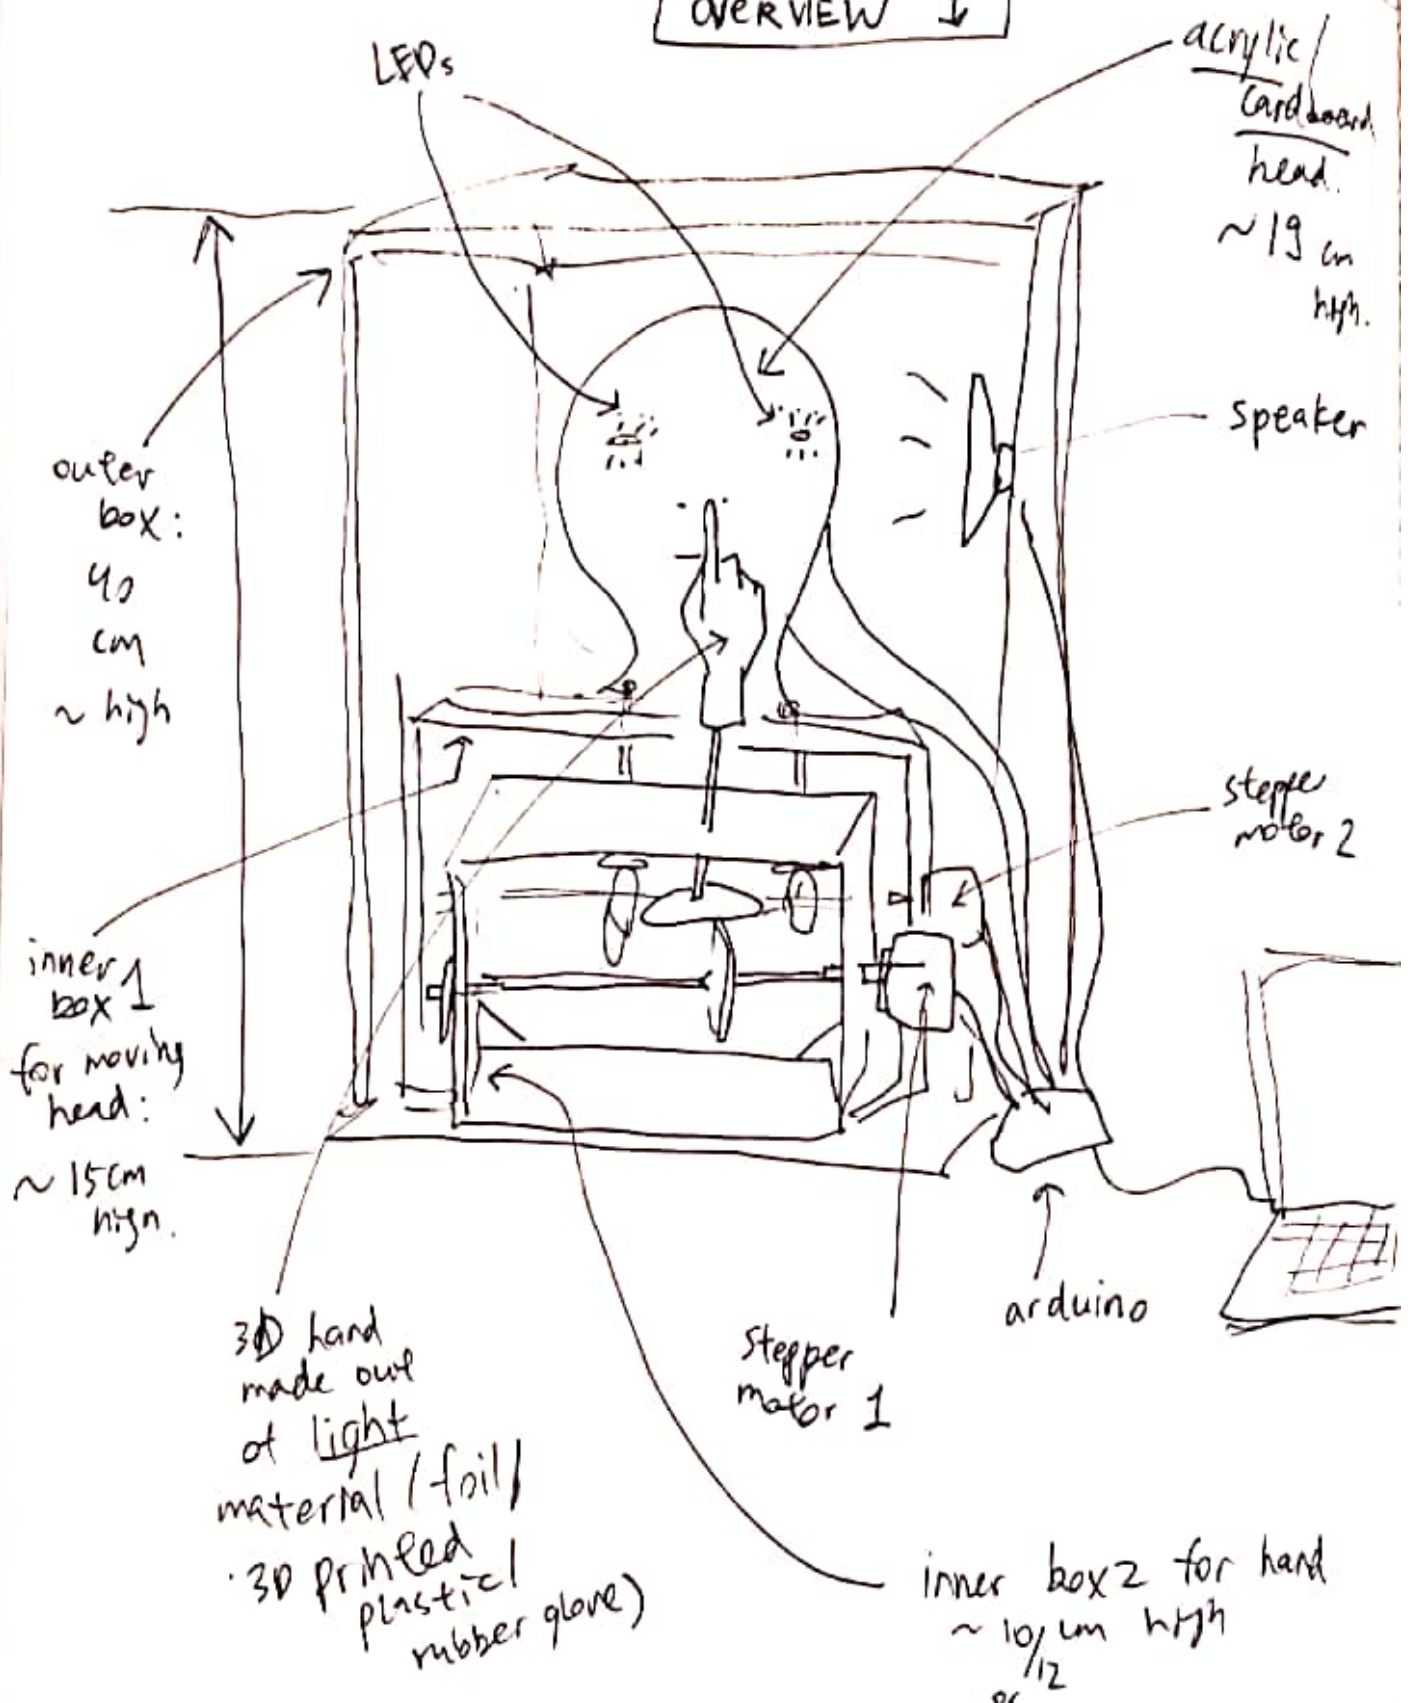 OVERVIEW ↓
LEDs
acrylic/
cardboard
head.
~19 cm
high.
speaker
outer
box:
40
cm
~ high
stepper
motor 2
inner
box 1
for moving
head:
~ 15cm
high.
3D hand
made out
of light
material / foil /
3D printed
plastic /
rubber glove)
stepper
motor 1
arduino
inner box 2 for hand
~ 10/12 cm high